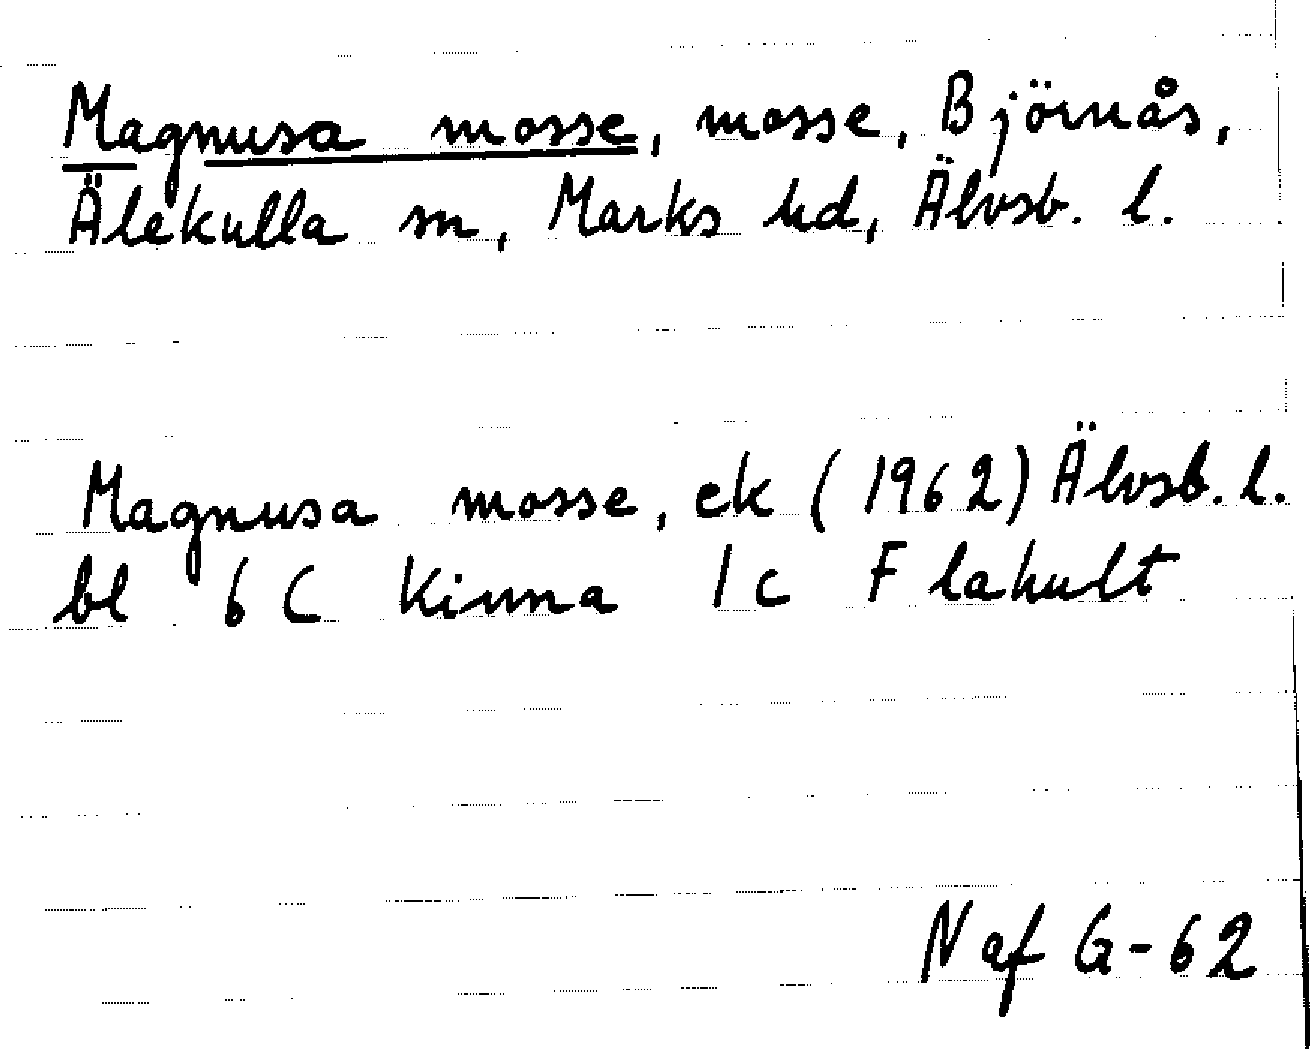 Magnusa mosse, mosse, Björnås,
Älekulla sn, Marks hd, Älvsb. l.
Magnusa mosse, ek (1962) Älvsb. l.
bl 6 C Kinna 1 c Flahult
N af G-62